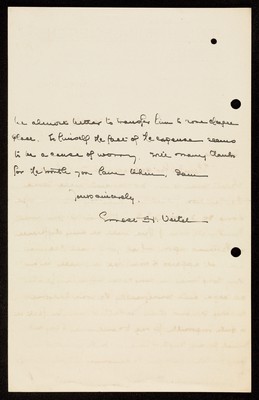 be almost better to transfer him to some cheaper
place. To himself the fact of the expense seems
to be a cause of worry. With many thanks
for the trouble you have taken, I am
yours sincerely,
Ernest H.